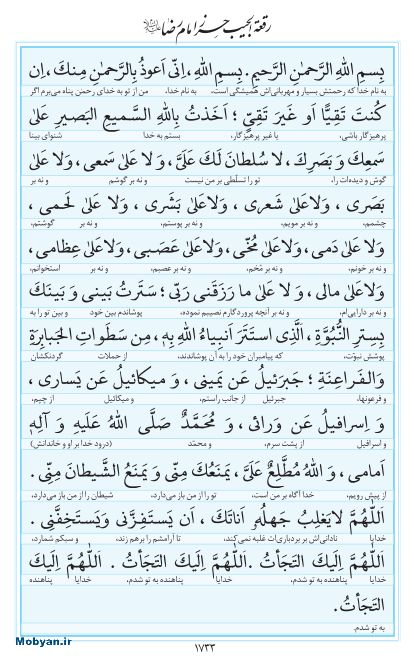 رقعة الجیب حرز امام رضا
بِسمِ اللهِ الرَّحمٰنِ الرَّحیمِ. بِسمِ اللهِ، اِنّی اَعوذُ بِالرَّحمٰنِ مِنكَ، اِن
به نام خدا که رحمتش بسیار و مهربانی‌اش همیشگی است. به نام خدا، من از تو به خدای رحمٰن پناه می‌برم اگر
كُنتَ تَقِیًّا اَو غَیرَ تَقِیٍّ ؛ اَخَذتُ بِاللهِ السَّمیعِ البَصیرِ عَلیٰ
پرهیزگار باشی، یا غیر پرهیزگار، بستم به خدا شنوای بینا
سَمعِكَ وَ بَصَرِكَ ، لا سُلطانَ لَكَ عَلَیَّ ، وَلا عَلیٰ سَمعی، وَلا عَلیٰ
گوش و دیده‌ات را، تو را تسلّطی بر من نیست و نه بر گوشم و نه بر
بَصَری ، وَلاعَلیٰ شَعری ، وَلاعَلیٰ بَشَری ، وَلا عَلیٰ لَحمی ،
چشمم، و نه بر مویم، و نه بر پوستم، و نه بر گوشتم،
وَلا عَلیٰ دَمی، وَلاعَلیٰ مُخّی، وَلاعَلیٰ عَصَبی، وَلاعَلیٰ عِظامی،
و نه بر خونم، و نه بر مُخم، و نه بر عصبم، و نه بر استخوانم،
وَلاعَلیٰ مالی ، وَ لا عَلیٰ ما رَزَقَنی رَبّی ؛ سَتَرتُ بَینی وَ بَینَكَ
و نه بر دارایی‌ام، و نه بر آنچه پروردگارم نصیبم نموده، پوشاندم بین خود و بین تو را به
بِسِترِ النُّبُوَّةِ ، الَّذی استَتَرَ اَنبِیاءُ اللهِ بِهٖ، مِن سَطَواتِ الجَبابِرَةِ
پوشش نبوّت، که پیامبران خود را به آن پوشاندند، از حملات گردنکشان
وَالفَراعِنَةِ ؛ جَبرَئیلُ عَن یَمینی ، وَ میكائیلُ عَن یَساری ،
و فرعونها، جبرئیل از جانب راستم، و میکائیل از چپم،
وَ اِسرافیلُ عَن وَرائی ، وَ مُحَمَّدٌ صَلَّی اللهُ عَلَیهِ وَ آلِهٖ
و اسرافیل از پشت سرم، و محمّد (درود خدا بر او و خاندانش)
اَمامی ، وَ اللهُ مُطَّلِعٌ عَلَیَّ ، یَمنَعُكَ مِنّی وَ یَمنَعُ الشَّیطانَ مِنّی .
از پیش رویم، خدا آگاه بر من است، تو را از من باز می‌دارد، شیطان را از من باز می‌دارد،
اَللّٰهُمَّ لایَغلِبُ جَهلُهٗ اَناتَكَ ، اَن یَستَفِزَّنی وَیَستَخِفَّنی .
خدایا نادانی‌اش بر بردباری‌ات غلبه نمی‌کند، تا آرامشم را برهم زند، و سبکم شمارد،
اَللّٰهُمَّ اِلَیكَ التَجَأتُ .اَللّٰهُمَّ اِلَیكَ التَجَأتُ . اَللّٰهُمَّ اِلَیكَ
خدایا پناهنده به تو شدم، خدایا پناهنده به تو شدم، خدایا پناهنده
التَجَأتُ.
به تو شدم.
۱۷۳۳
Mobyan.ir